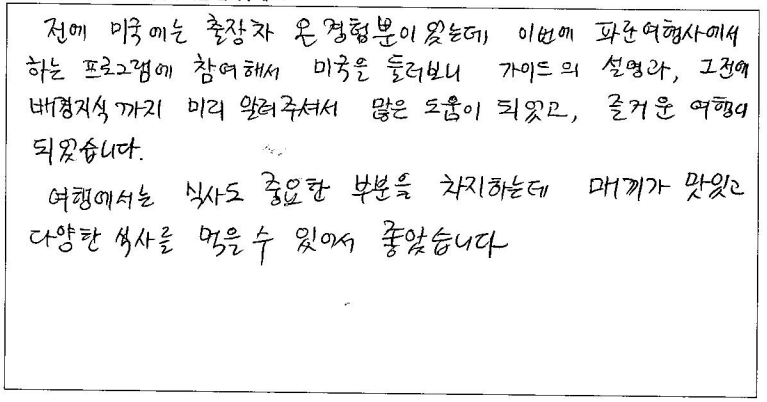 전에 미국에는 출장차 온 경험뿐이 있는데, 이번에 파란여행사에서
하는 프로그램에 참여해서 미국을 둘러보니 가이드의 설명과, 그전에
배경지식까지 미리 알려주셔서 많은 도움이 되었고, 즐거운 여행이
되었습니다.
여행에서는 식사도 중요한 부분을 차지하는데 매끼가 맛있고
다양한 식사를 먹을 수 있어서 좋았습니다